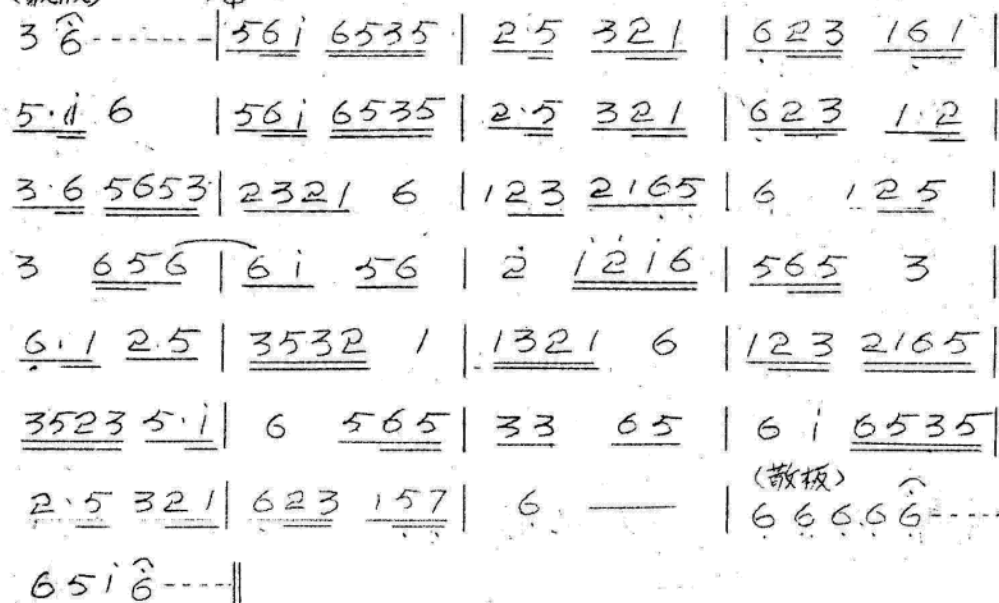 3 6--------|561̇ 6535|2·5 321|6̣23 16̣1|
5·1̇ 6|561̇ 6535|2·5 321|6̣23 1·2|
3·6 5653|2321 6|123 216̣5̣|6̣ 125|
3 656|61̇ 56|2̇ 1̇2̇1̇6|565 3|
6̣·1 2·5|3532 1|1321 6|123 2165|
3523 5·1̇|6 565|33 65|6 1̇ 6535|
2·5 321|6̣23 15̣7̣|6̣ —|
(散板)
6̣ 6̣ 6̣ 6̣ 6̣----
6 5 1̇ 6----‖